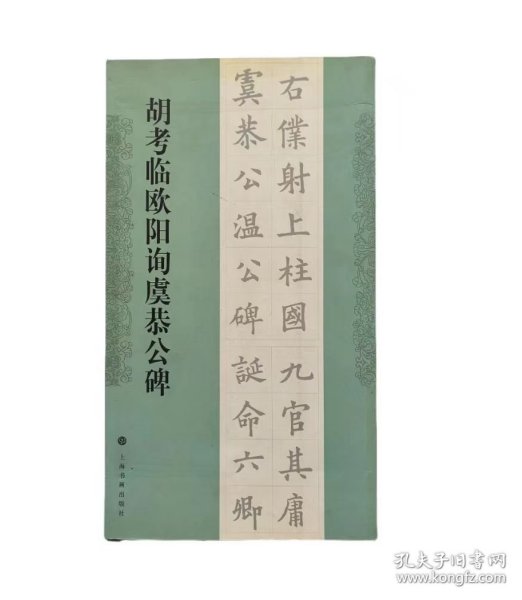 胡考临欧阳询虞恭公碑
上海书画出版社
右僕射上柱國九官其庸
虞恭公温公碑誕命六卿
孔夫子旧书网
www.kongfz.com